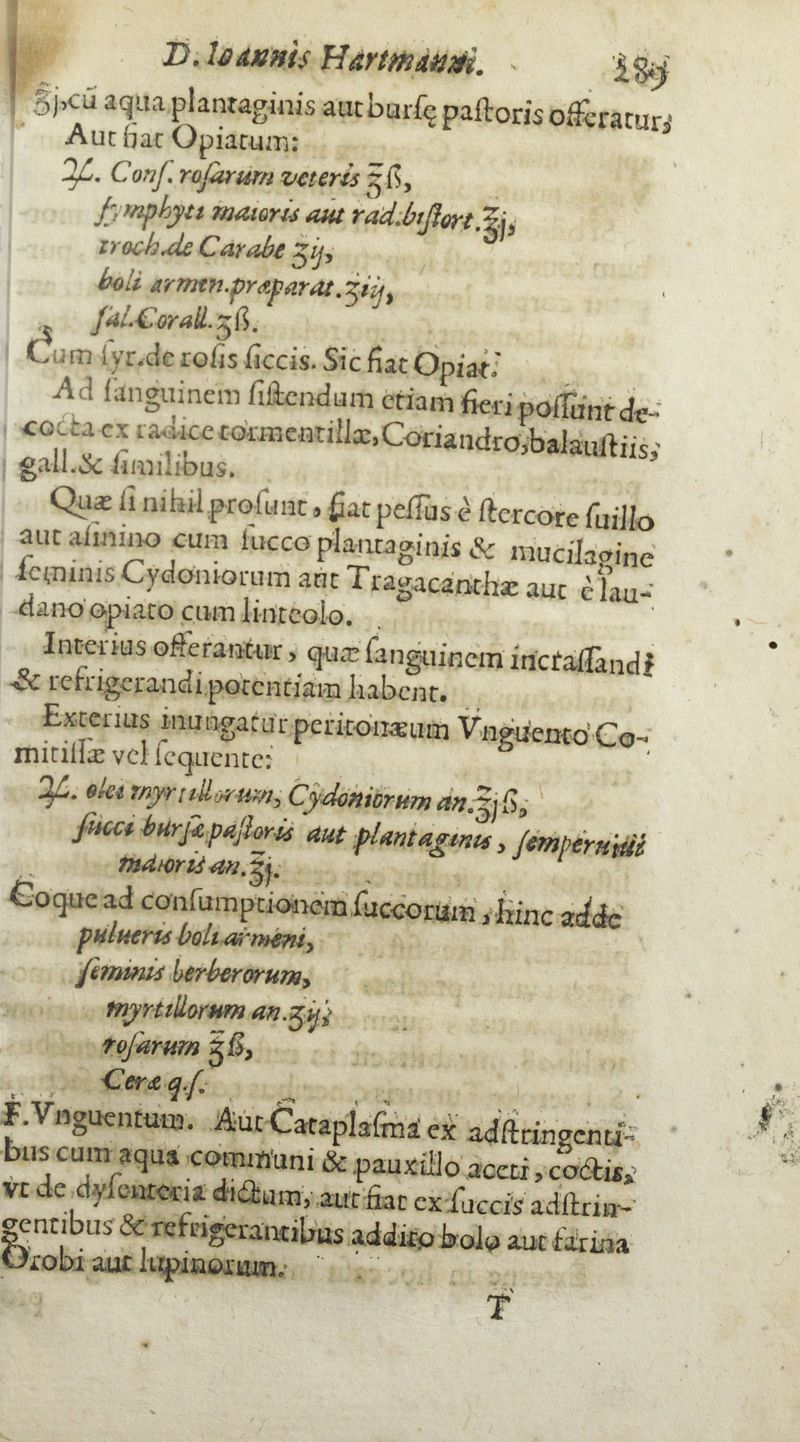 D. Ioannis Hartmanni. 289
ʒj, cū aqua plantaginis aut burſę paſtoris offeratur;
Aut fiat Opiatum:
℞. Conſ. roſarum veteris ℥ß,
ſymphyti maioris aut rad. biſtort. ℥j,
troch. de Carabe ʒij,
boli armen. præparat. ʒiij,
ſal. Corall. ʒß.
Cum ſyr. de roſis ſiccis. Sic fiat Opiat:
Ad ſanguinem ſiſtendum etiam fieri poſſunt de-
cocta ex radice tormentillæ, Coriandro, balauſtiis,
gall. & ſimilibus.
Quæ ſi nihil proſunt, fiat peſſus è ſtercore ſuillo
aut aſinino cum ſucco plantaginis & mucilagine
ſeminis Cydoniorum aut Tragacanthæ aut è lau-
dano opiato cum linteolo.
Interius offerantur, quæ ſanguinem incraſſandi
& refrigerandi potentiam habent.
Exterius inungatur peritonæum Vnguento Co-
mitiſſæ vel ſequente:
℞. olei myrtillorum, Cydoniorum an. ℥jß,
ſucci burſæ paſtoris aut plantaginis, ſemperuiui
maioris an. ℥j.
Coque ad conſumptionem ſuccorum, hinc adde
pulueris boli armeni,
ſeminis berberorum,
myrtillorum an. ʒij,
roſarum ℥ß,
Ceræ q.ſ.
F. Vnguentum. Aut Cataplaſma ex adſtringenti-
bus cum aqua communi & pauxillo aceti, coctis,
vt de dyſenteria dictum, aut fiat ex ſuccis adſtrin-
gentibus & refrigerantibus addito bolo aut farina
Orobi aut lupinorum.
T